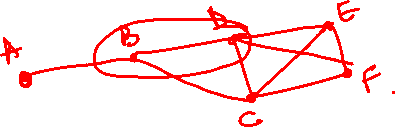 A
B
D
E
F
C